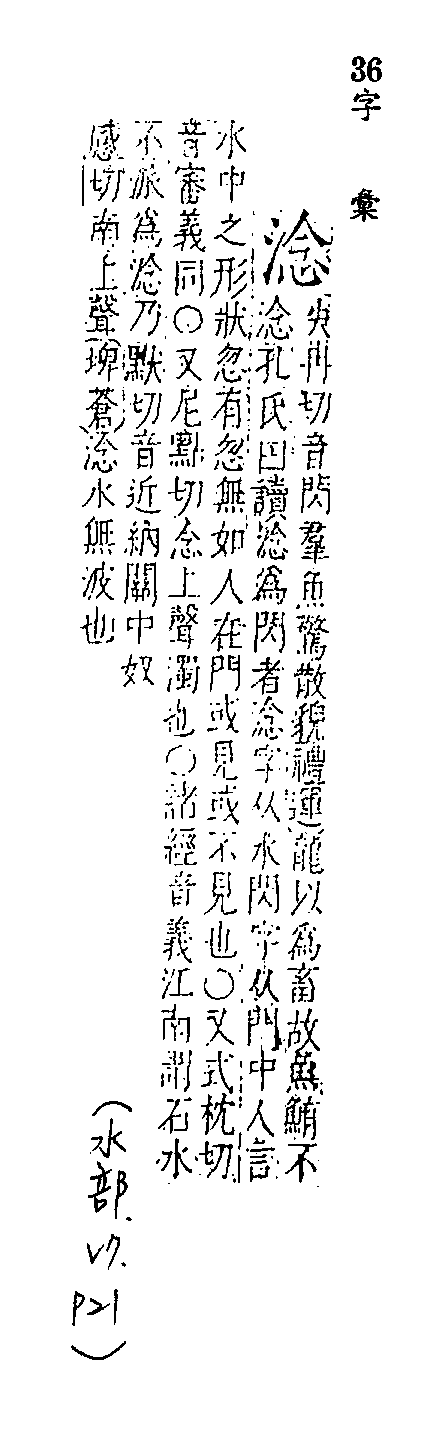 36 字彙
淰
失冉切音閃羣魚驚散貌禮運龍以爲畜故魚鮪不
淰孔氏曰讀淰爲閃者淰字从水閃字从門中人言
水中之形狀忽有忽無如人在門或見或不見也〇又式枕切
音審義同〇又尼點切念上聲濁也〇諸經音義江南謂石水
不流爲淰乃默切音近納關中奴
感切南上聲埤蒼淰水無波也
(水部.V7.
P21)